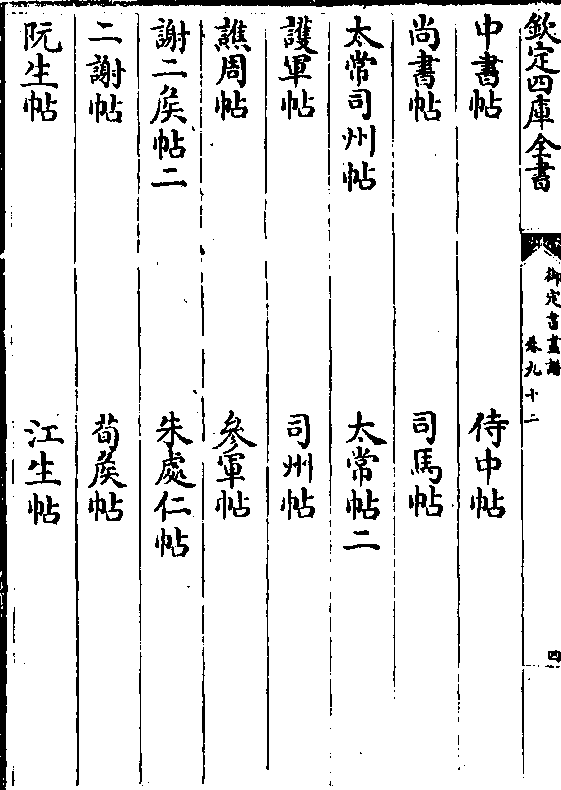 欽定四庫全書
御定書畫譜
卷九十二
四
中書帖 侍中帖
尚書帖 司馬帖
太常司州帖 太常帖二
護軍帖 司州帖
譙周帖 參軍帖
謝二矦帖二 朱處仁帖
二謝帖 荀矦帖
阮生帖 江生帖